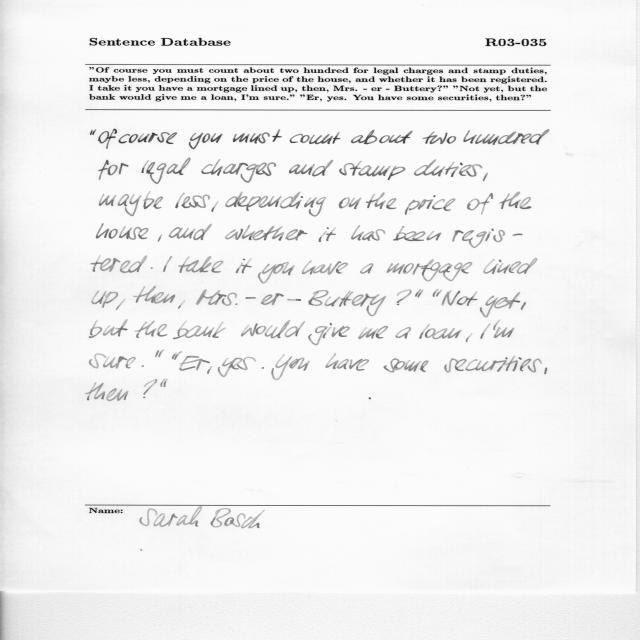 Sentence Database R03-035
"Of course you must count about two hundred for legal charges and stamp duties,
maybe less, depending on the price of the house, and whether it has been registered.
I take it you have a mortgage lined up, then, Mrs. - er - Buttery?" "Not yet, but the
bank would give me a loan, I'm sure." "Er, yes. You have some securities, then?"
"Of course you must count about two hundred
for legal charges and stamp duties,
maybe less, depending on the price of the
house, and whether it has been regis-
tered. I take it you have a mortgage lined
up, then, Mrs. - er - Buttery?" "Not yet,
but the bank would give me a loan, I'm
sure." "Er, yes. You have some securities,
then?"
Name: Sarah Bosch